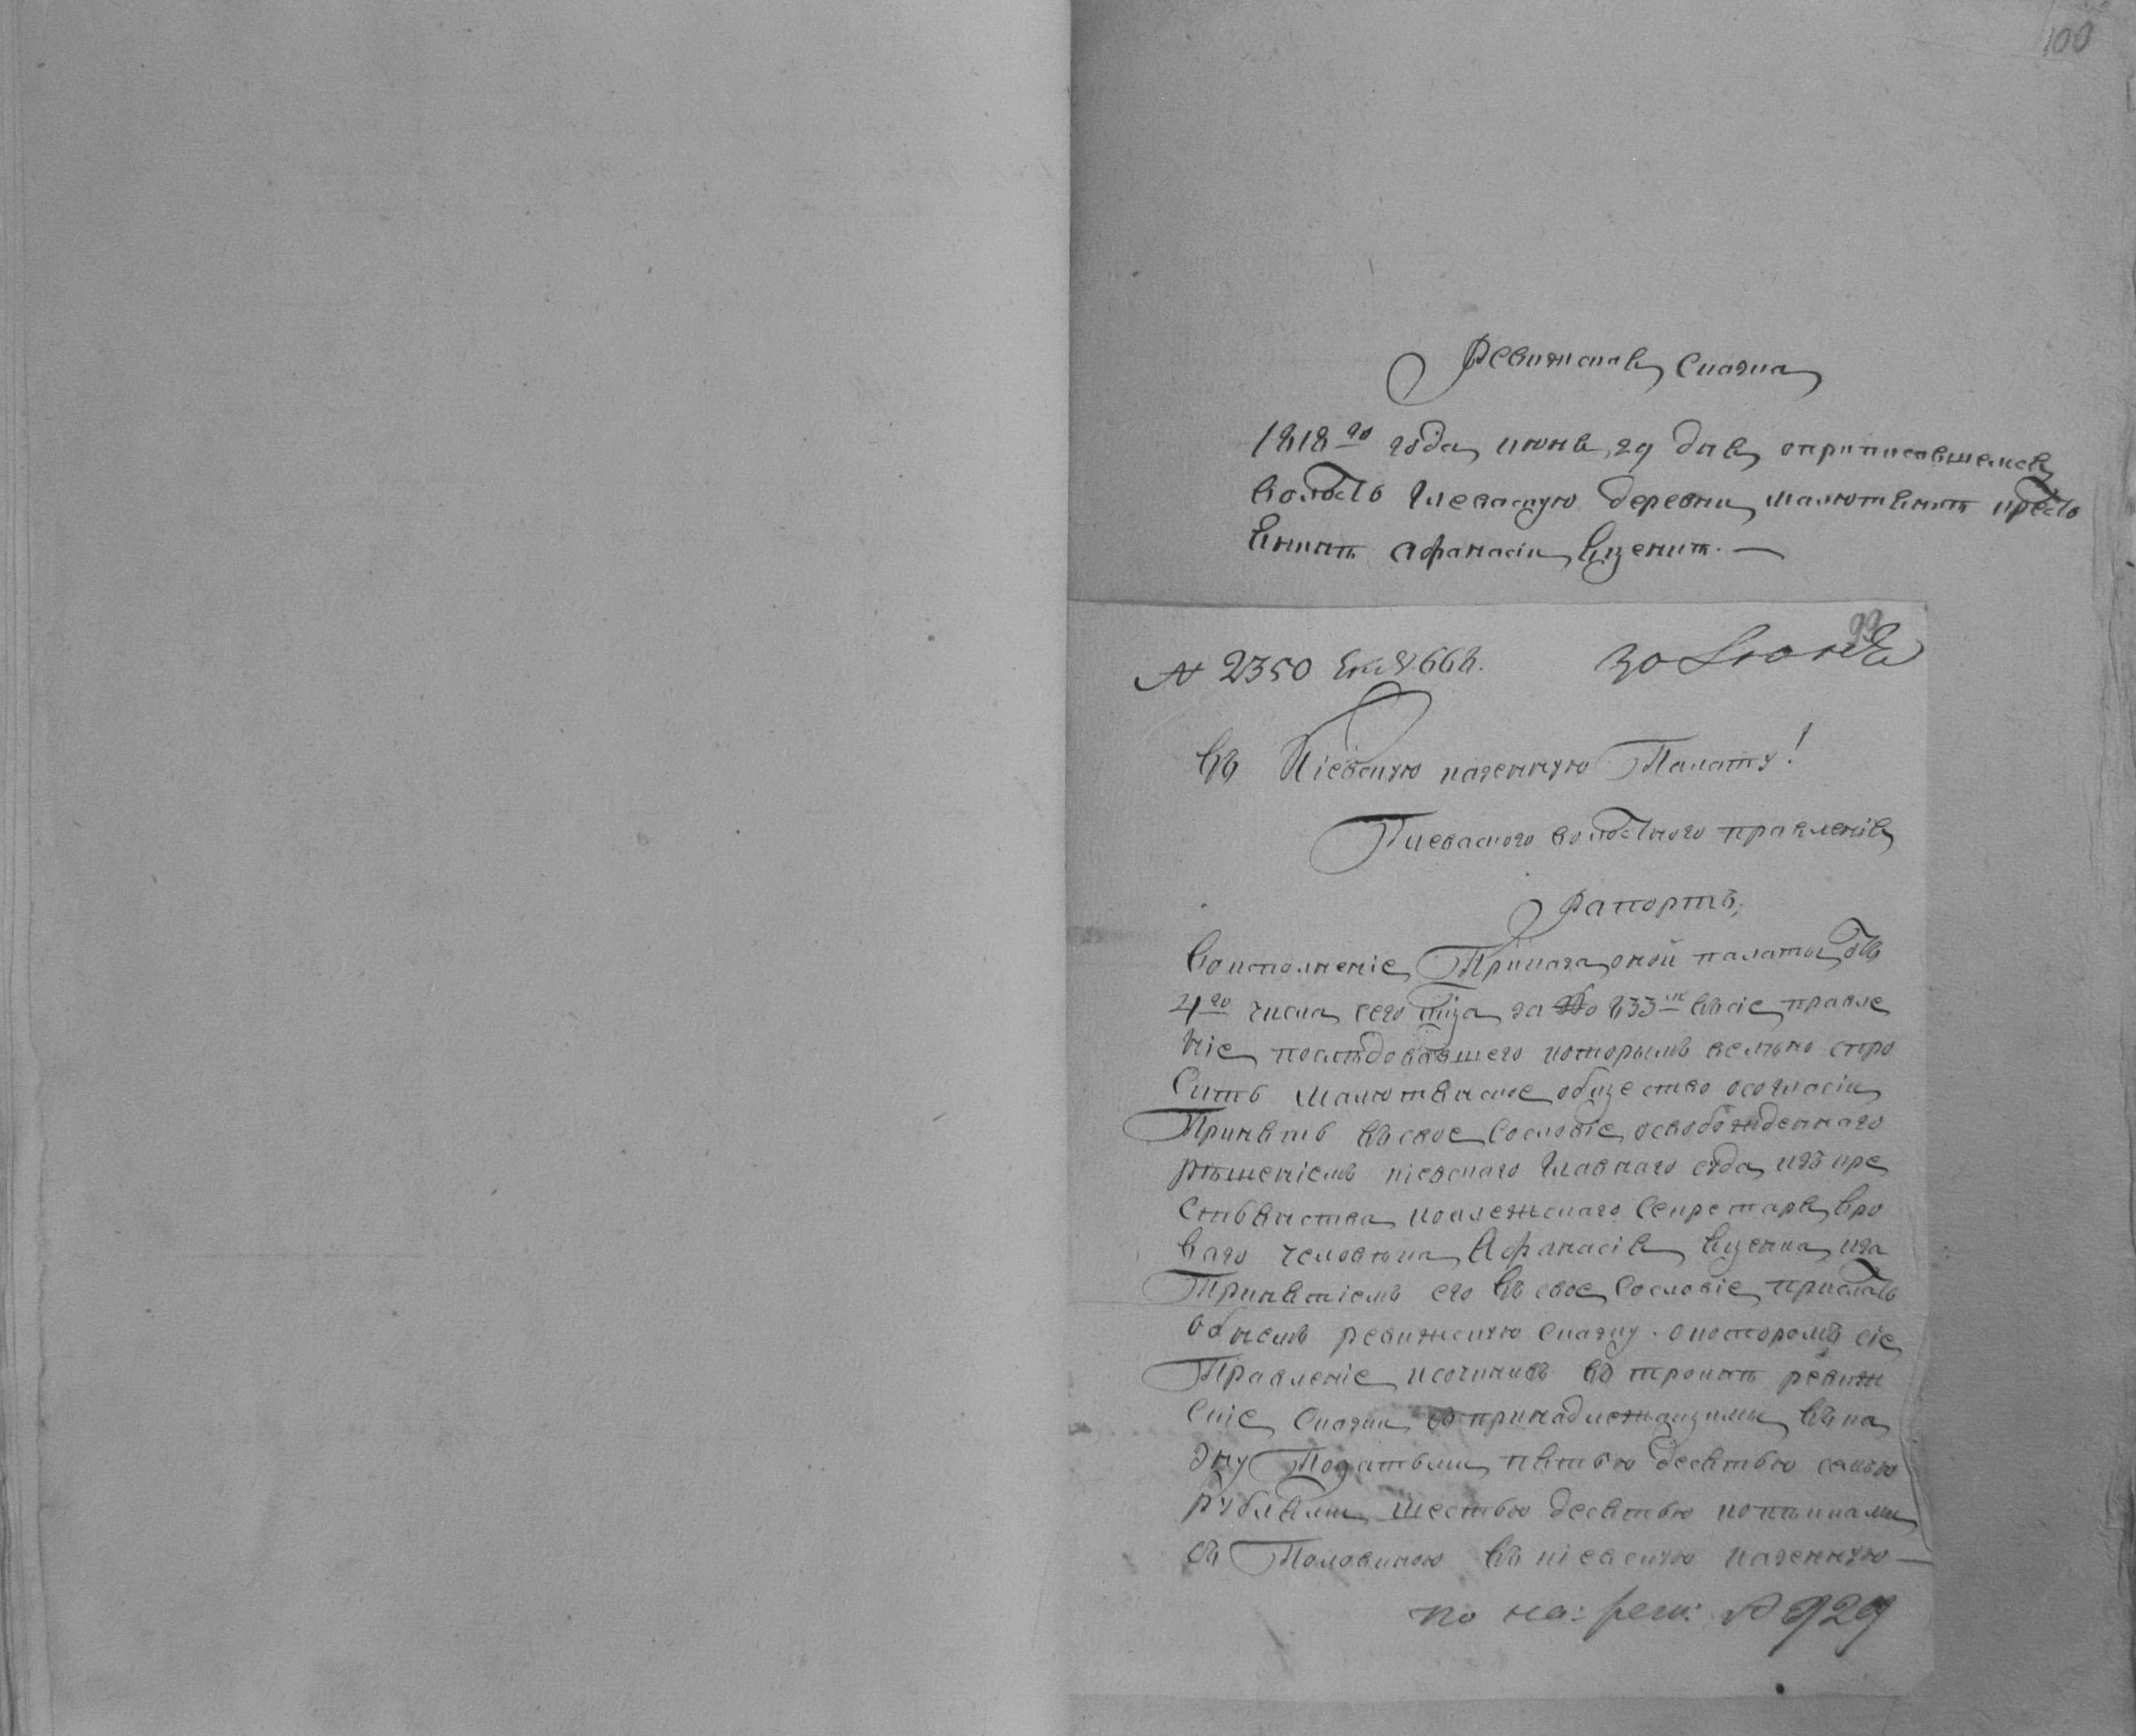 100
Ревижская Сказка
1818го года июня 29 дня оприписавшемся
волость Глеваскую деревни малютянкѣ крѣсть
янинѣ Афанасіи Яценкѣ. —
99
№ 2350 30 Июня
Въ Кіевскую казенную Палату!
Глеваского волостного правленія
Рапортъ;
Воисполненіе Приказа оной палаты отъ
4го числа сего м̃ца за № 833м въсіе правле
ніе послѣдовавшего которымъ велѣно спро
сить малютянское общество осогласіи
Принять въ свое Сословіе освобожденнаго
рѣшеніемъ кіевскаго Главнаго суда изъ кре
стьянства коллежскаго Секретаря
ваго человѣка Афанасія Яценка, иза
Принятіемъ его въ свое Сословіе прислать
обнемъ ревижскую сказку. окоторомъ сіе
Правленіе исочинивъ въ троикѣ ревиж
скіе Сказки съ принадлежащими въка
зну Податьми пятью десятью семью
рублями шестью десятью копѣиками
съ Половиною въ кіевскую казенную —
по на: реги: № 929